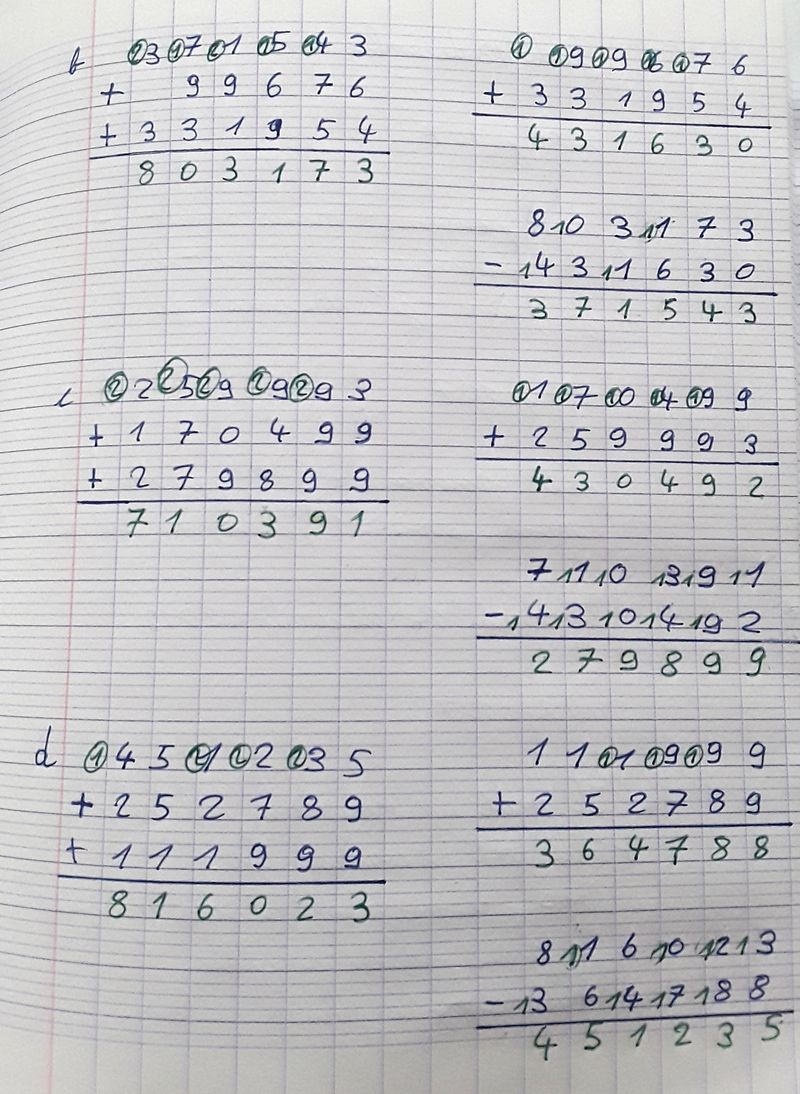 b ②3 ①7 ②1 ①5 ①4 3
+ 9 9 6 7 6
+ 3 3 1 9 5 4
8 0 3 1 7 3
① ①9 ①9 ①6 ①7 6
+ 3 3 1 9 5 4
4 3 1 6 3 0
8 10 3 11 7 3
- 14 3 11 6 3 0
3 7 1 5 4 3
c ②2 ②5 ②9 ②9 ②9 3
+ 1 7 0 4 9 9
+ 2 7 9 8 9 9
7 1 0 3 9 1
①1 ①7 ①0 ①4 ①9 9
+ 2 5 9 9 9 3
4 3 0 4 9 2
7 11 10 13 19 11
- 14 13 10 14 19 2
2 7 9 8 9 9
d ①4 5 ②1 ②2 ②3 5
+ 2 5 2 7 8 9
+ 1 1 1 9 9 9
8 1 6 0 2 3
1 1 ①1 ①9 ①9 9
+ 2 5 2 7 8 9
3 6 4 7 8 8
8 11 6 10 12 13
- 13 6 14 17 18 8
4 5 1 2 3 5